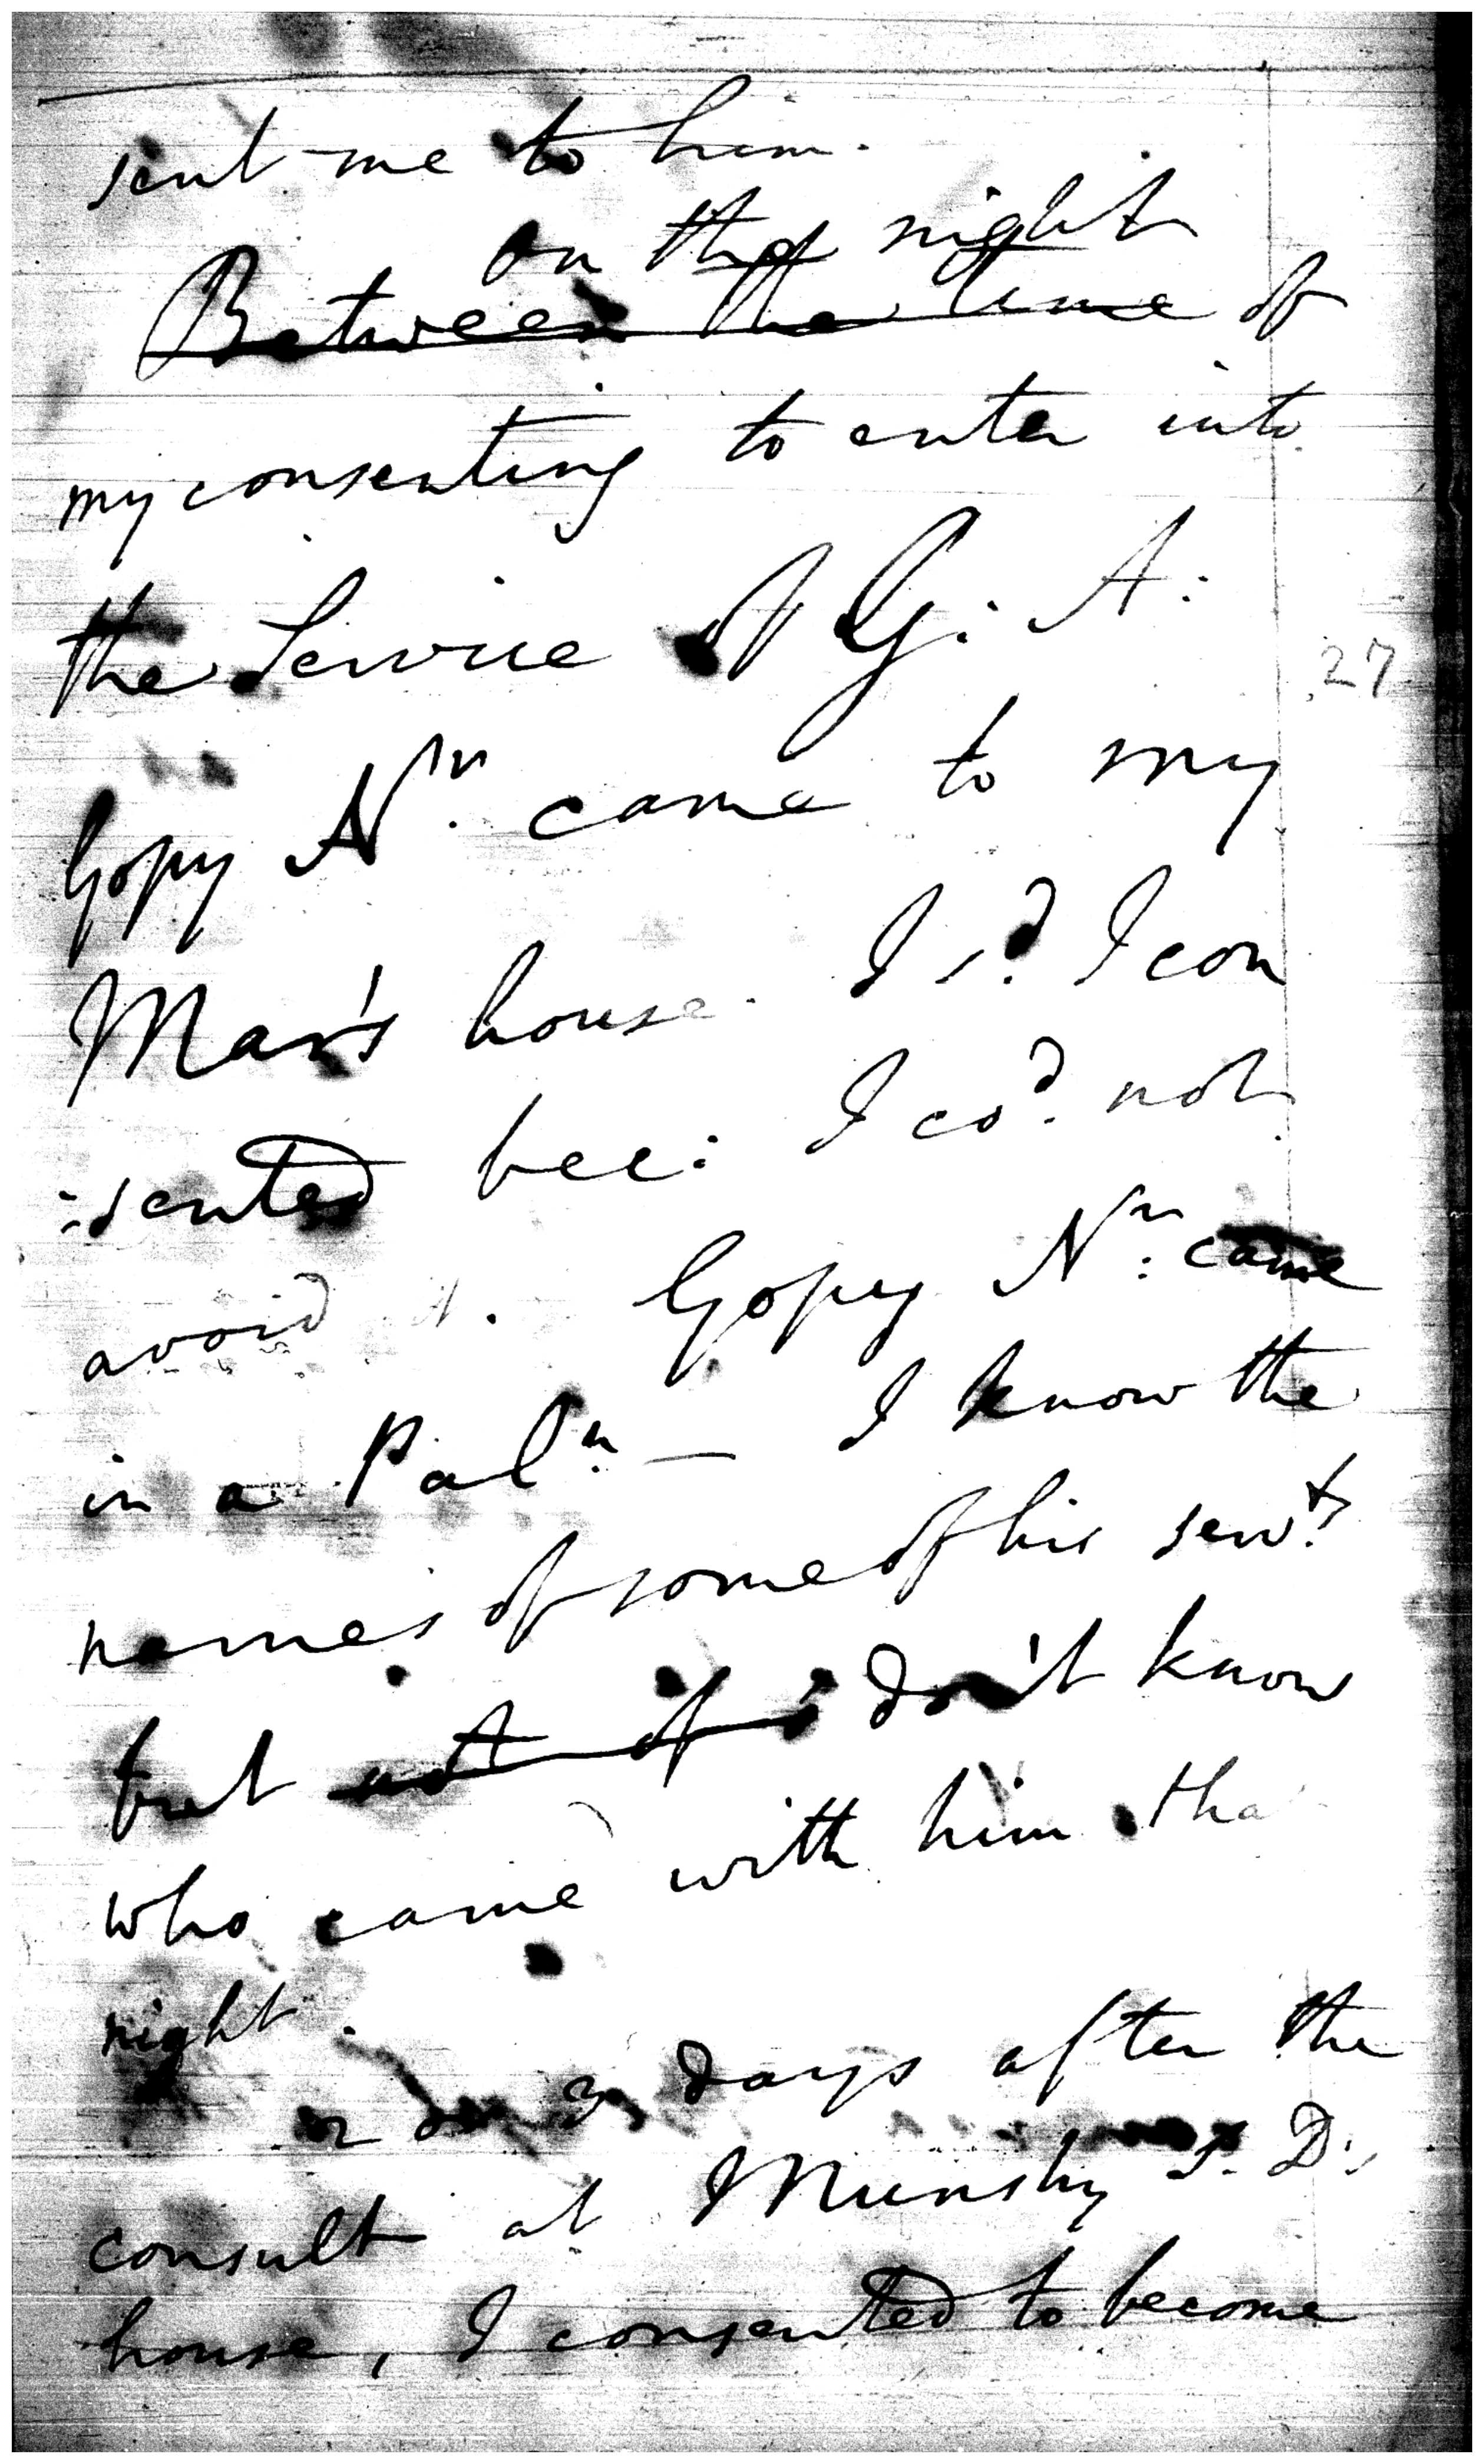 sent me to him.
on the night
Between the time of
my consenting to enter into
the Service of G: A:
27
Gopy Nn. came to my
Mar's house. I sd. I con
:sented bec: I cod. not
avoid it. Gopy Nn: came
in a Paln. — I know the
names of some of his servts.
but not of don't know
who came with him tha
night.
2 or 3 days after the
consult at Munshy S. D:
house, I consented to become